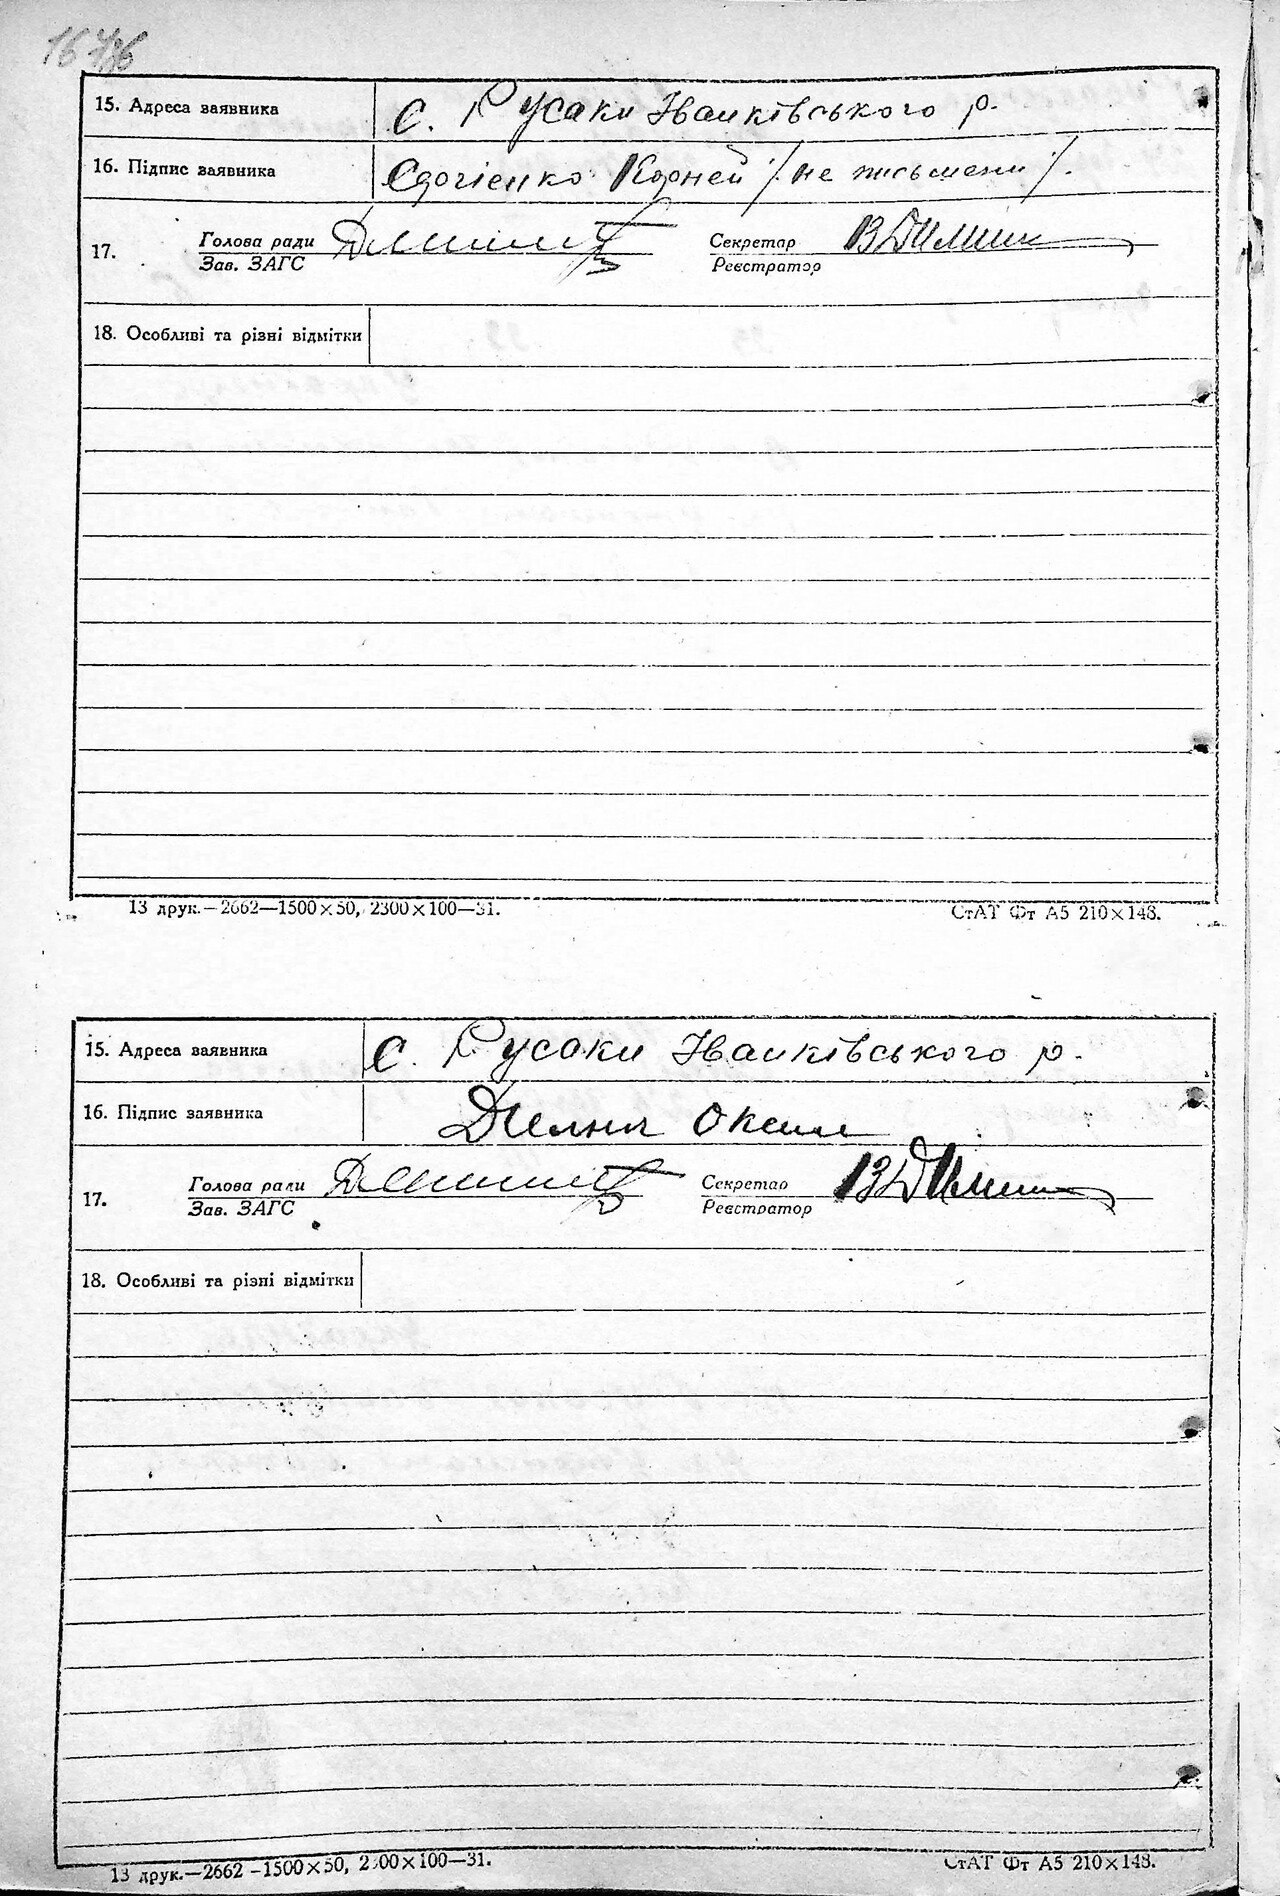 15. Адреса заявника с. Русаки Іванківського р.
16. Підпис заявника Корней /не письмени/.
17. Голова ради Секретар
Зав. ЗАГС Реєстратор
18. Особливі та різні відмітки
13 друк.—2662—1500×50, 2300×100—31.
СтАТ Фт А5 210×148.
15. Адреса заявника с. Русаки Іванківського р.
16. Підпис заявника
17. Голова ради Секретар
Зав. ЗАГС Реєстратор
18. Особливі та різні відмітки
13 друк.—2662—1500×50, 2300×100—31.
СтАТ Фт А5 210×148.